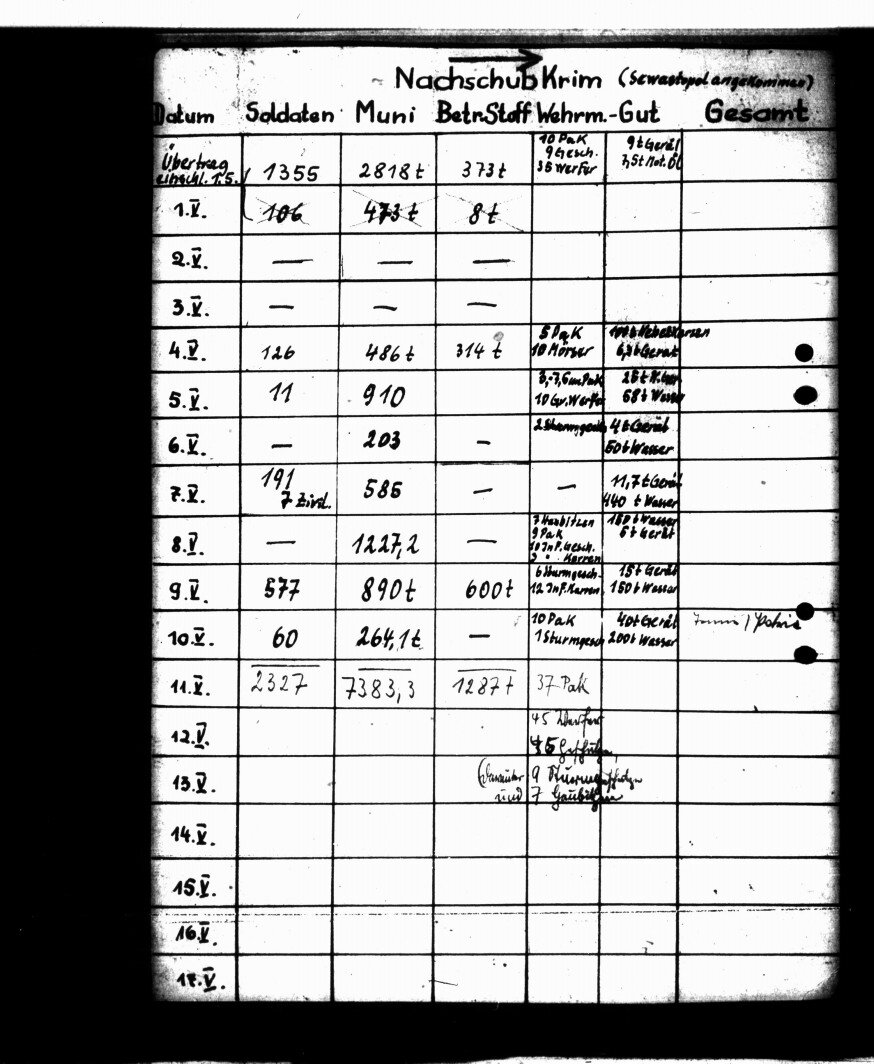 Nachschub Krim (Sewastopol angekommen)
Datum Soldaten Muni Betr.Stoff Wehrm.-Gut Gesamt
Übertrag einschl. 1.5. 1355 2818 t 373 t 10 Pak 9 Gesch. 36 Werfer 9 t Gerät 7,5t Mot. Öl
1.V. 106 473 t 8 t
2.V. — — —
3.V. — — —
4.V. 126 486 t 314 t 5 Pak 10 Mörser Gerät
5.V. 11 910 3,-7,5 cm Pak 10 Gr. Werfer 25 t 68 t Wasser
6.V. — 203 — 2 Sturmgesch 4 t Gerät 50 t Wasser
7.V. 191 7 Zivil. 585 — — 11,7 t Gerät 440 t Wasser
8.V. — 1227,2 — 7 Haubitzen 9 Pak 10 Inf. Gesch. Karren 150 t Wasser 5 t Gerät
9.V. 577 890 t 600 t 6 Sturmgesch. 12 Inf. Karren 15 t Gerät 150 t Wasser
10.V. 60 264,1 t — 10 Pak 1 Sturmgesch 40 t Gerät 200 t Wasser
11.V. 2327 7383,3 1287 t 37 Pak
12.V. 45 Werfer
45 Geschütze,
13.V. (Darunter 9 Sturmgeschütze
und 7 Haubitzen
14.V.
15.V.
16.V.
17.V.